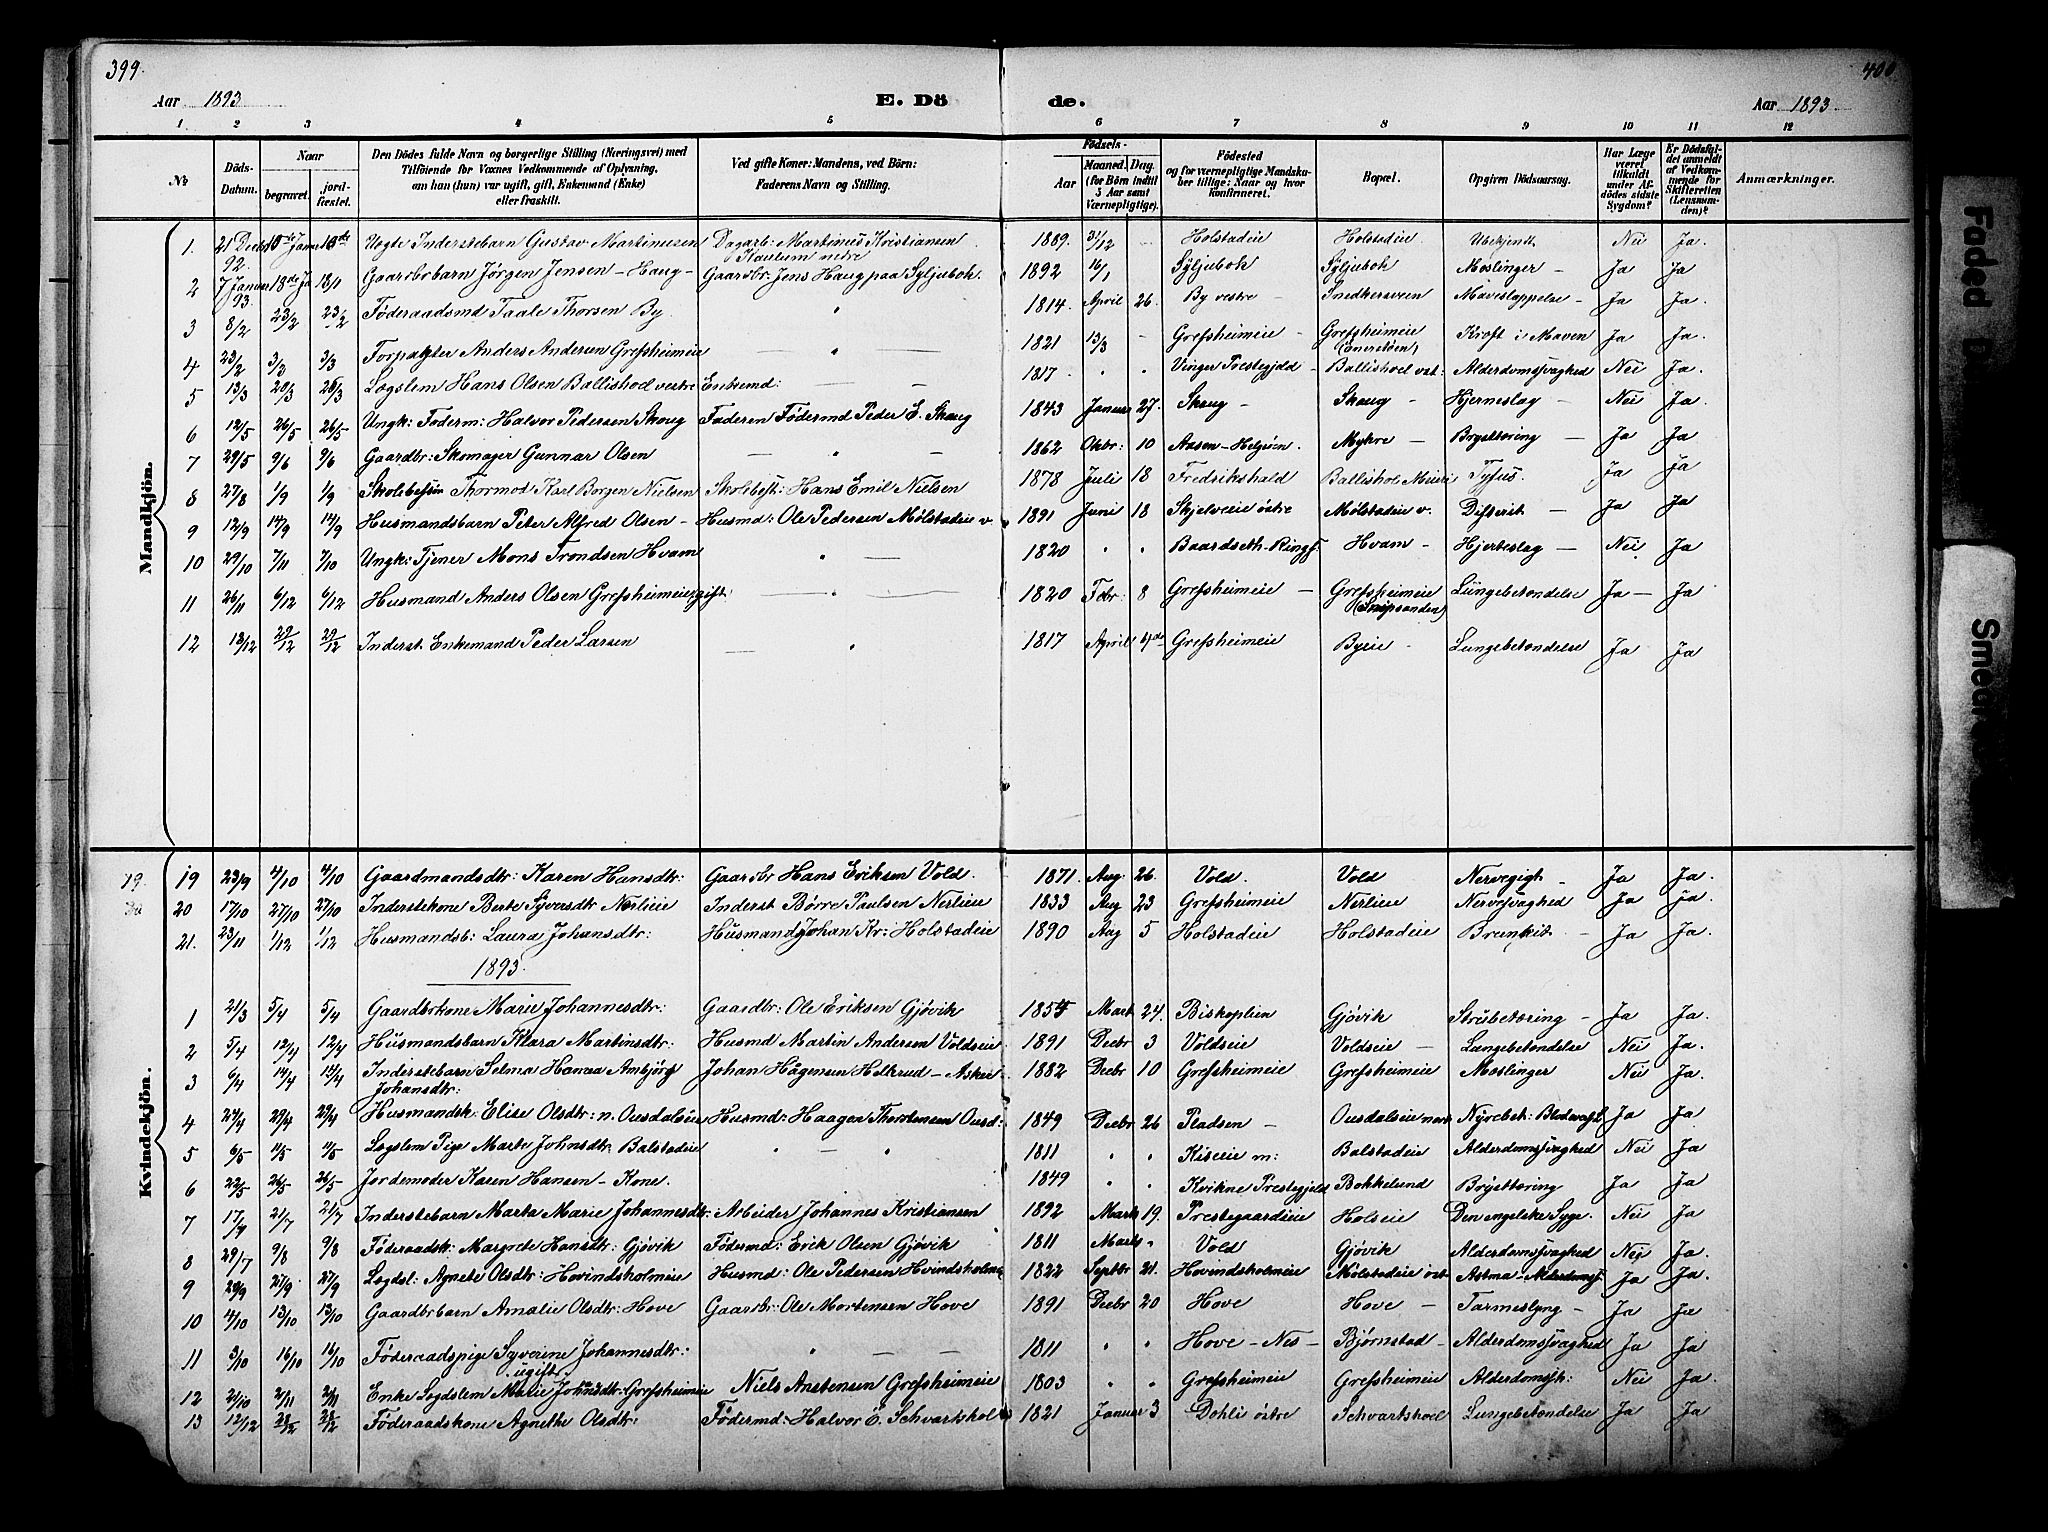 399.
400
Aar 1893
E. Dö
de.
Aar 1893
1. 2 3 4 5 6 7 8 9 10 11 12
№
Döds-Datum.
Naar
begravet.
jord-fæstet.
Den Dödes fulde Navn og borgerlige Stilling (Næringsvei) med
Tilföiende for Voxnes Vedkommende af Oplysning,
om han (hun) var ugift, gift, Enkemand (Enke)
eller fraskilt.
Ved gifte Koner: Mandens, ved Börn:
Faderens Navn og Stilling.
Födsels-
Aar
Maaned. Dag.
(for Börn indtil
5 Aar samt
Værnepligtige).
Födested
og for værnepligtige Mandska-
ber tillige: Naar og hvor
konfirmeret.
Bopæl.
Opgiven Dödsaarsag.
Har Læge
været
tilkaldt
under Af-
dödes sidste
Sygdom?
Er Dödsfal-
det anmeldt
af Vedkom-
mende for
Skifteretten
(Lensman-
den)?
Anmærkninger.
Mandkjön.
1. 21 Decbr 92. Uægte Inderstebarn Gustav Martinusen Dagarb: Martinus Kristiansen Kaulum nedre 1889. 31/12 Holstadeie Holstadeie Ubekjendt Nei Ja.
2 7 Januar 93. 18de Ja 18/1 Gaardbrbarn Jørgen Jensen – Haug – Gaardbr: Jens Haug paa Syljubok. 1892 16/1 Syljubok Syljubok Meslinger – Ja Ja
3 8/2 23/2 23/2 Føderaadsmd Taale Thorsen By " 1814. April 26. By vestre – Snedkersveen Maveslappelse – Ja Ja.
4 23/2 3/3 3/3 Forpagter Anders Andersen Grefsheimeie — " — 1821 13/3 Grefsheimeie – Grefsheimeie Kræft i Maven Ja Ja.
5 13/3 20/3 20/3 Lægslem Hans Olsen Ballishoel vestre Enkemd: — — 1817 " " Vinger Prestegjeld – Ballishoel vest: Alderdomssvaghed Nei Ja.
6 12/5 26/5 26/5 Ungk: Føderm: Halvor Pedersen Skaug Faderen Fødermd Peder E. Skaug 1843 Januar 27. Skaug – Skaug – Hjerneslag – Nei Ja.
7 29/5 9/6 9/6 Gaardbr: Skomager Gunnar Olsen — " — 1862 Oktbr: 10 Aasen – Helgøen. Myhre – Brysttæring – Ja Ja
8 27/8 1/9 1/9 Skolebest: Thormod Karl Borgen Nielsen Skolebest: Hans Emil Nielsen 1878 Juli 18 Fredrikshald Ballishol Tyfus. Ja Ja
9 12/9 14/9 14/9 Husmandsbarn Peter Alfred Olsen – Husmd: Ole Pedersen Mølstadeie v. 1891 Juni 18 Skjelveie østre Mølstadeie v. Difterit – Ja Ja
10 29/10 7/11 7/10 Ungk: Tjener Mons Trondsen Hvam " — 1820 " " Baardseth – Rings. Hvam – Hjerteslag – Nei Ja
11 26/11 6/12 6/12 Husmand Anders Olsen Grefsheimeie (gift) — " — 1820 Febr: 8 Grefsheimeie – Grefsheimeie Lungebetændelse Ja – Ja
12 18/12 29/12 29/12 Inderst Enkemand Peder Larsen — " 1817 April 4de Grefsheimeie Byeie – Lungebetændelse Ja Ja
Kvindekjön.
19. 19 23/9 4/10 4/10 Gaardmandsdtr: Karen Hansdtr: Gaardbr Hans Eriksen Vold. 1871. Aug: 26. Vold. Vold Nervegigt – Ja Ja.
20 20 17/10 27/10 27/10 Inderstekone Berte Syversdtr Nerlieie Inderst Børre Paulsen Nerlieie 1833 Aug 23 Grefsheimeie Nerlieie Nervesvaghed Ja Ja
21. 23/11 1/12 1/12 Husmandsb: Laura Johansdtr: Husmand Johan Kr: Holstadeie 1890 Aug 5 Holstadeie Holstadeie Bronkit – Ja Ja.
1893.
1 21/3 5/4 5/4 Gaardbrkone Marie Johannesdtr: Gaardbr: Ole Eriksen Gjøvik 1854 Mart 24. Biskoplien Gjøvik Strubetæring – Ja Ja.
2 5/4 12/4 12/4 Husmandsbarn Klara Martinsdtr: Husmd Martin Andersen Voldseie 1891 Decbr 3 Voldseie Voldseie – Lungebetændelse Nei Ja.
3 6/4 14/4 14/4 Inderstebarn Selma Hanna Ambjørg Johansdtr: Johan Hagensen Helkrud – Askeie 1882 Decbr 10 Grefsheimeie Grefsheimeie Meslinger Nei Ja.
4 24/4 29/4 29/4 Husmandsk: Elise Olsdtr: n. Ousdaleie Husmd: Haagen Thorstensen Ousd: 1849 Decbr 26 Pladsen – Ousdaleie Nyrebet: Ja Ja
5 6/5 11/5 11/5 Lægslem Pige Marte Johnsdtr. Balstadeie " " 1811 " " Kiseie n: Balstadeie Alderdomssvaghed Nei Ja
6 22/5 26/5 26/5 Jordemoder Karen Hansen – Kone. 1849 " " Kvikne Prestegjeld Bokkelund Brysttæring Ja Ja
7 17/7 21/7 21/7 Inderstebarn Marta Marie Johannesdtr: Arbeider Johannes Kristiansen 1892 Marts 19. Prestegaardseie Holseie Den engelske Syge. Nei Ja
8 29/7 9/8 9/8 Føderaadsk: Margrete Hansdtr: Gjøvik Fødermd: Erik Olsen Gjøvik 1811 Marts " Vold Gjøvik Alderdomssvaghed Nei Ja.
9 20/9 27/9 27/9 Lægdsl: Agnete Olsdtr: Hovindsholmeie Husmd: Ole Pedersen Hovindsholm 1822 Septbr 21. Hovindsholmeie Mølstadeie øst Astma – Alderdomss. Ja Ja.
10 4/10 13/10 13/10 Gaardbrbarn Amalie Olsdtr: Hove Gaardbr: Ole Mortensen Hove 1891 Decbr 20 Hove Hove – Tarmeslyng – Ja Ja
11 3/10 16/10 16/10 Føderaadspige Syverine Johannesdtr: ugift " — — 1811 " " Hove – Nes – Bjørnstad – Alderdomssvaghed Ja Ja
12 2/10 2/11 2/11 Enke Lægdslem Marie Johnsdtr: Grefsheimeie Niels Anstensen Grefsheimeie 1803 " " Grefsheimeie Grefsheimeie Alderdomsk: Nei Ja
13 12/12 28/12 28/12 Føderaadskone Agnethe Olsdtr: Fødermd: Halvor E. Schvartshol 1821 Januar 3 Dohli østre Schvartshoel Lungebetændelse Ja Ja
Faded